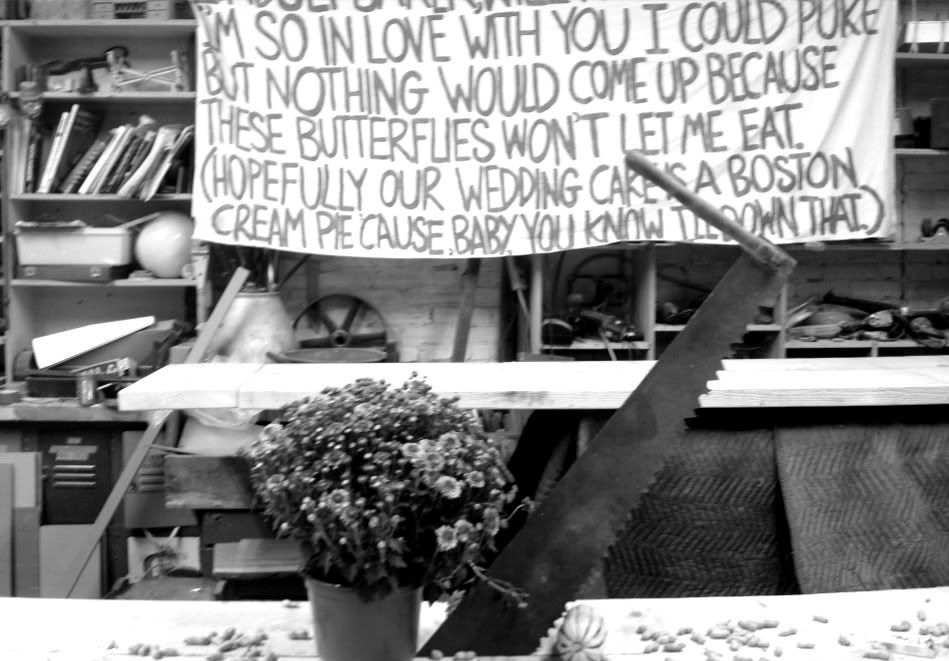 I'M SO IN LOVE WITH YOU I COULD PUKE
BUT NOTHING WOULD COME UP BECAUSE
THESE BUTTERFLIES WON'T LET ME EAT.
(HOPEFULLY OUR WEDDING CAKE IS A BOSTON
CREAM PIE 'CAUSE, BABY, YOU KNOW I'LL DOWN THAT.)